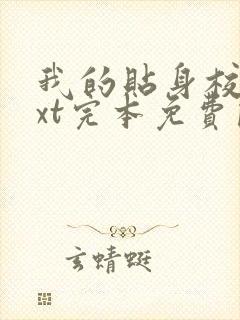 我的貼身校
xt完本免費
玄蜻蜓